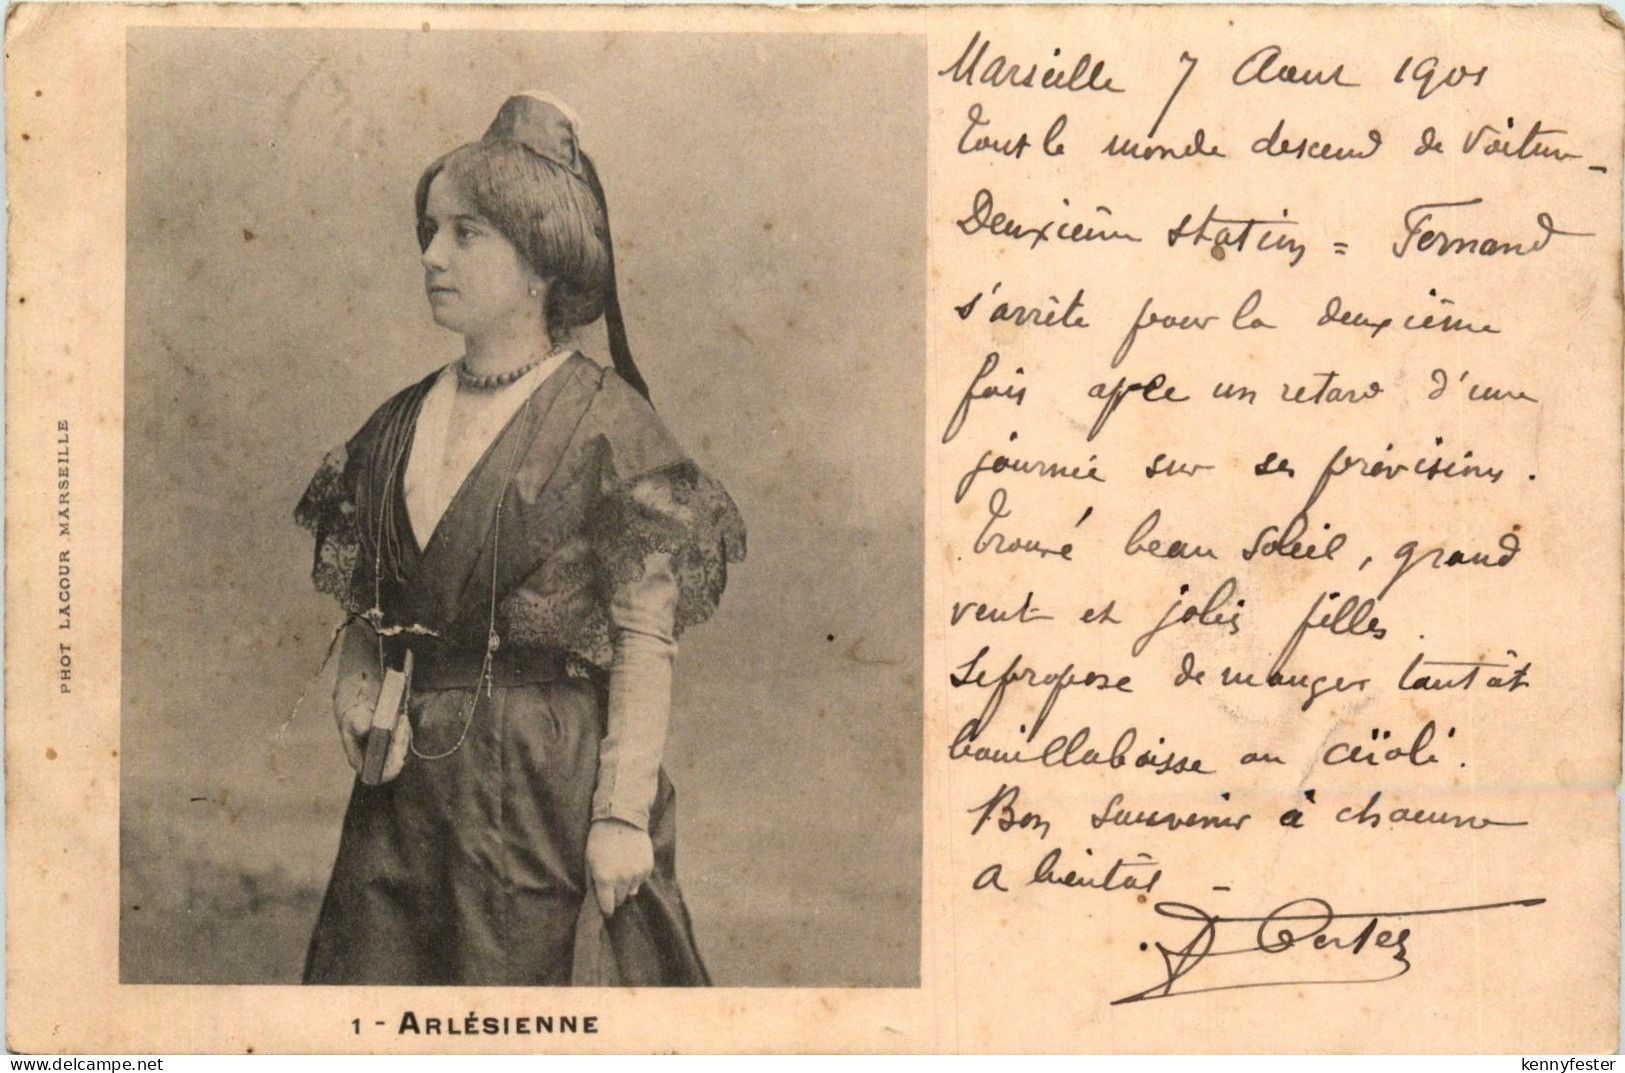 Marseille 7 Aout 1901
Tout le monde descend de Voiture -
Deuxième station = Fernand
s'arrête pour la deuxième
fois après un retard d'une
journée sur ses prévisions.
Trouvé beau soleil, grand
vent et jolies filles.
Se propose de manger tantôt
bouillabaisse ou aïoli.
Bon souvenir à chacune
A bientôt -
PHOT LACOUR MARSEILLE
1 - ARLÉSIENNE
delcampe.net
kennyfester